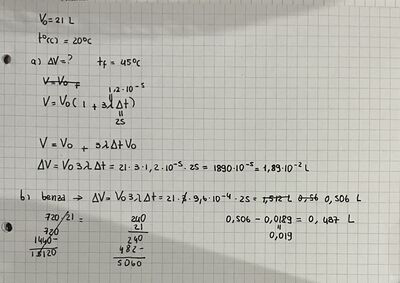 V₀ = 21 L
t°(c) = 20°C
a) ΔV = ? tf = 45°C
V = V₀
1,2·10⁻⁵
V = V₀ ( 1 + 3λΔt)
25
V = V₀ + 3λΔt V₀
ΔV = V₀ 3λΔt = 21·3·1,2·10⁻⁵·25 = 1890·10⁻⁵ = 1,89·10⁻² L
b) benza → ΔV = V₀ 3λΔt = 21·3·9,6·10⁻⁴·25 = 1,512 L 0,56 0,506 L
720/21 =
720
1440-
15120
240
21
240
482-
5060
0,506 - 0,0189 = 0,487 L
0,019